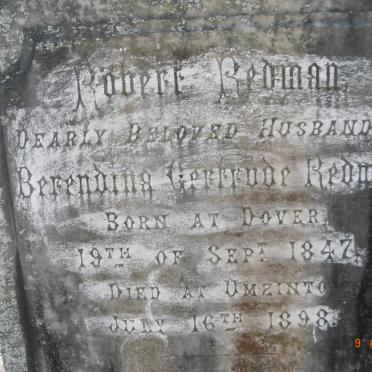 Robert Redman,
Dearly Beloved Husband
Berendina Gertrude Redm
Born at Dover,
19th of Sept. 1847,
Died at Umzinto
July 16th 1898.
9